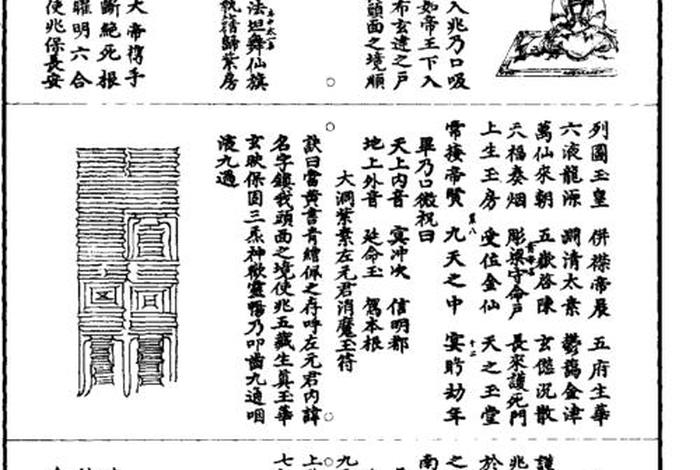 入兆乃口吸
如帝王下入
布玄達之戶
頭面之境順
法坦舞仙旗
執籍歸紫房
大帝携手
斷絕死根
曜明六合
使兆保長安
列圖玉皇 併襟帝晨 五府生華
六液龍源 澗清太素 鬱藹金津
萬仙來朝 五嶽啓陳 玄僊沉散
六福奏烟 彫梁守命戶 長來護死門
上生玉房 受位金仙 天之玉堂
常接帝賢 第八 九天之中 十二 宴盻劫年
畢乃口微祝曰
天上內音 寞冲次 信明郁
地上外音 延命玉 駕本根
大洞紫素左元君消魔玉符
訣曰當黃書青繒佩之存呼左元君內諱
名字鎮我頭面之境使兆五藏生真玉華
玄映保固三炁神歡靈暢乃叩齒九通咽
液九過
護
兆
於
之
南
九
上
七